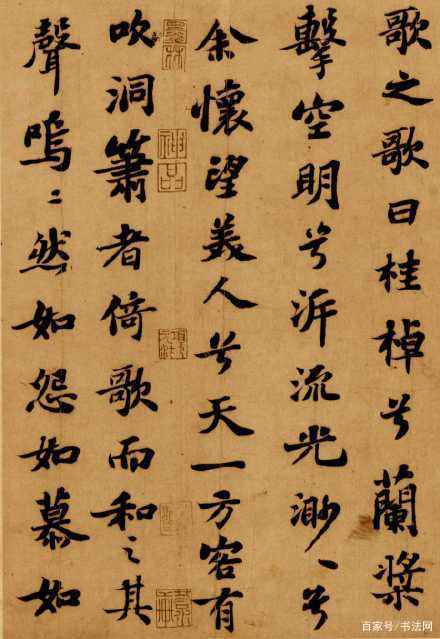 歌之歌曰桂棹兮蘭槳
擊空明兮泝流光渺〻兮
余懷望美人兮天一方客有
吹洞簫者倚歌而和之其
聲嗚〻然如怨如慕如
墨林
神品
百家号/书法网